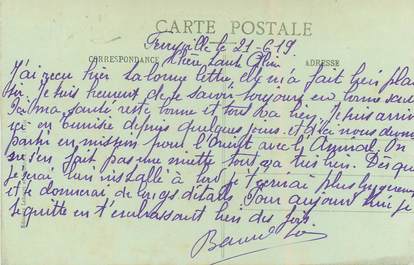 CARTE POSTALE
Ferryville le 21-6-19
CORRESPONDANCE Chère ADRESSE
J'ai reçu hier ta bonne lettre, elle m'a fait bien plai
sir. Je suis heureux de te savoir toujours en bonne santé
ma santé reste bonne et tout va
en Tunisie depuis quelques jours. et d'ici nous devons
partir en mission pour l'Orient avec l'Amiral. On
s'en fait pas une miette tout va très bien. Dès que
je serai bien installé à bord je t'écrirai plus longuement
et te donnerai de longs détails. Pour aujourd'hui je
te quitte en t'embrassant bien des fois